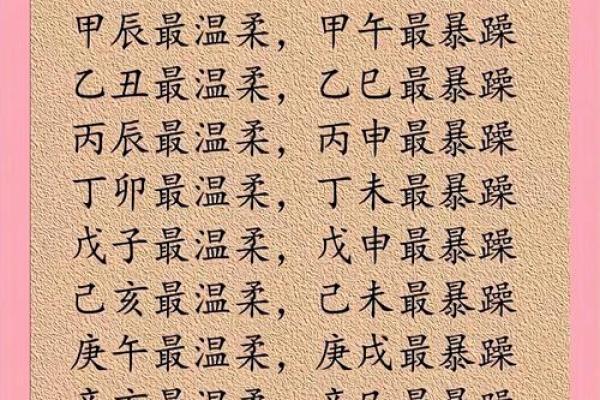 甲辰最温柔，甲午最暴躁
乙丑最温柔，乙巳最暴躁
丙辰最温柔，丙申最暴躁
丁卯最温柔，丁未最暴躁
戊子最温柔，戊申最暴躁
己亥最温柔，己未最暴躁
庚午最温柔，庚戌最暴躁
辛亥最温柔，辛巳最暴躁